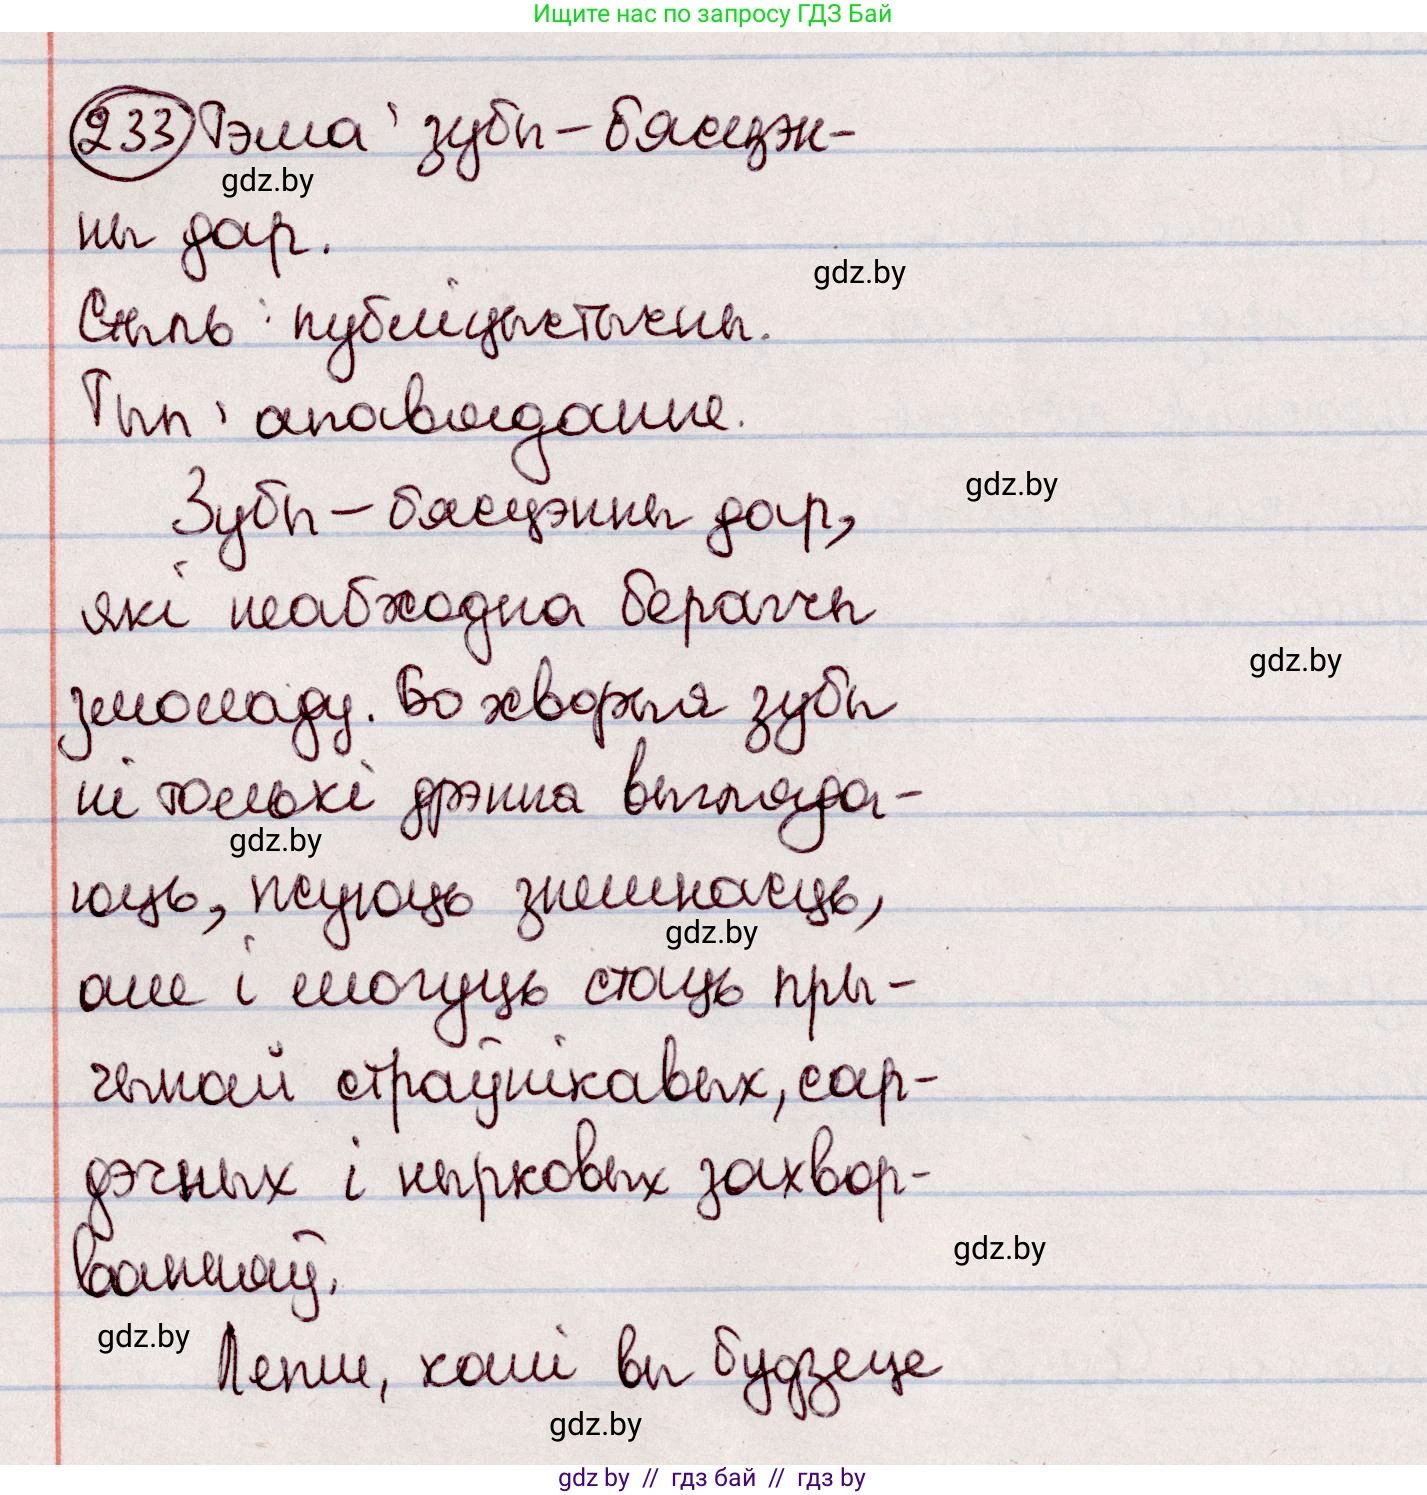 Ищите нас по запросу ГДЗ Бай
233 Тэма: зубы – бясцэн-
gdz.by
ны дар.
gdz.by
Стыль: публіцыстычны.
Тып: апавяданне.
Зубы – бясцэнны дар,
gdz.by
які неабходна берагчы
змоладу. Бо хворыя зубы
gdz.by
ні толькі дрэнна выгляда-
gdz.by
юць, псуюць знешнасць,
gdz.by
але і могуць стаць пры-
чынай страўнікавых, сар-
дэчных і нырковых захвор-
ванняў.
gdz.by
gdz.by
Лепш, калі вы будзеце
gdz.by
gdz by // гдз бай // гдз by